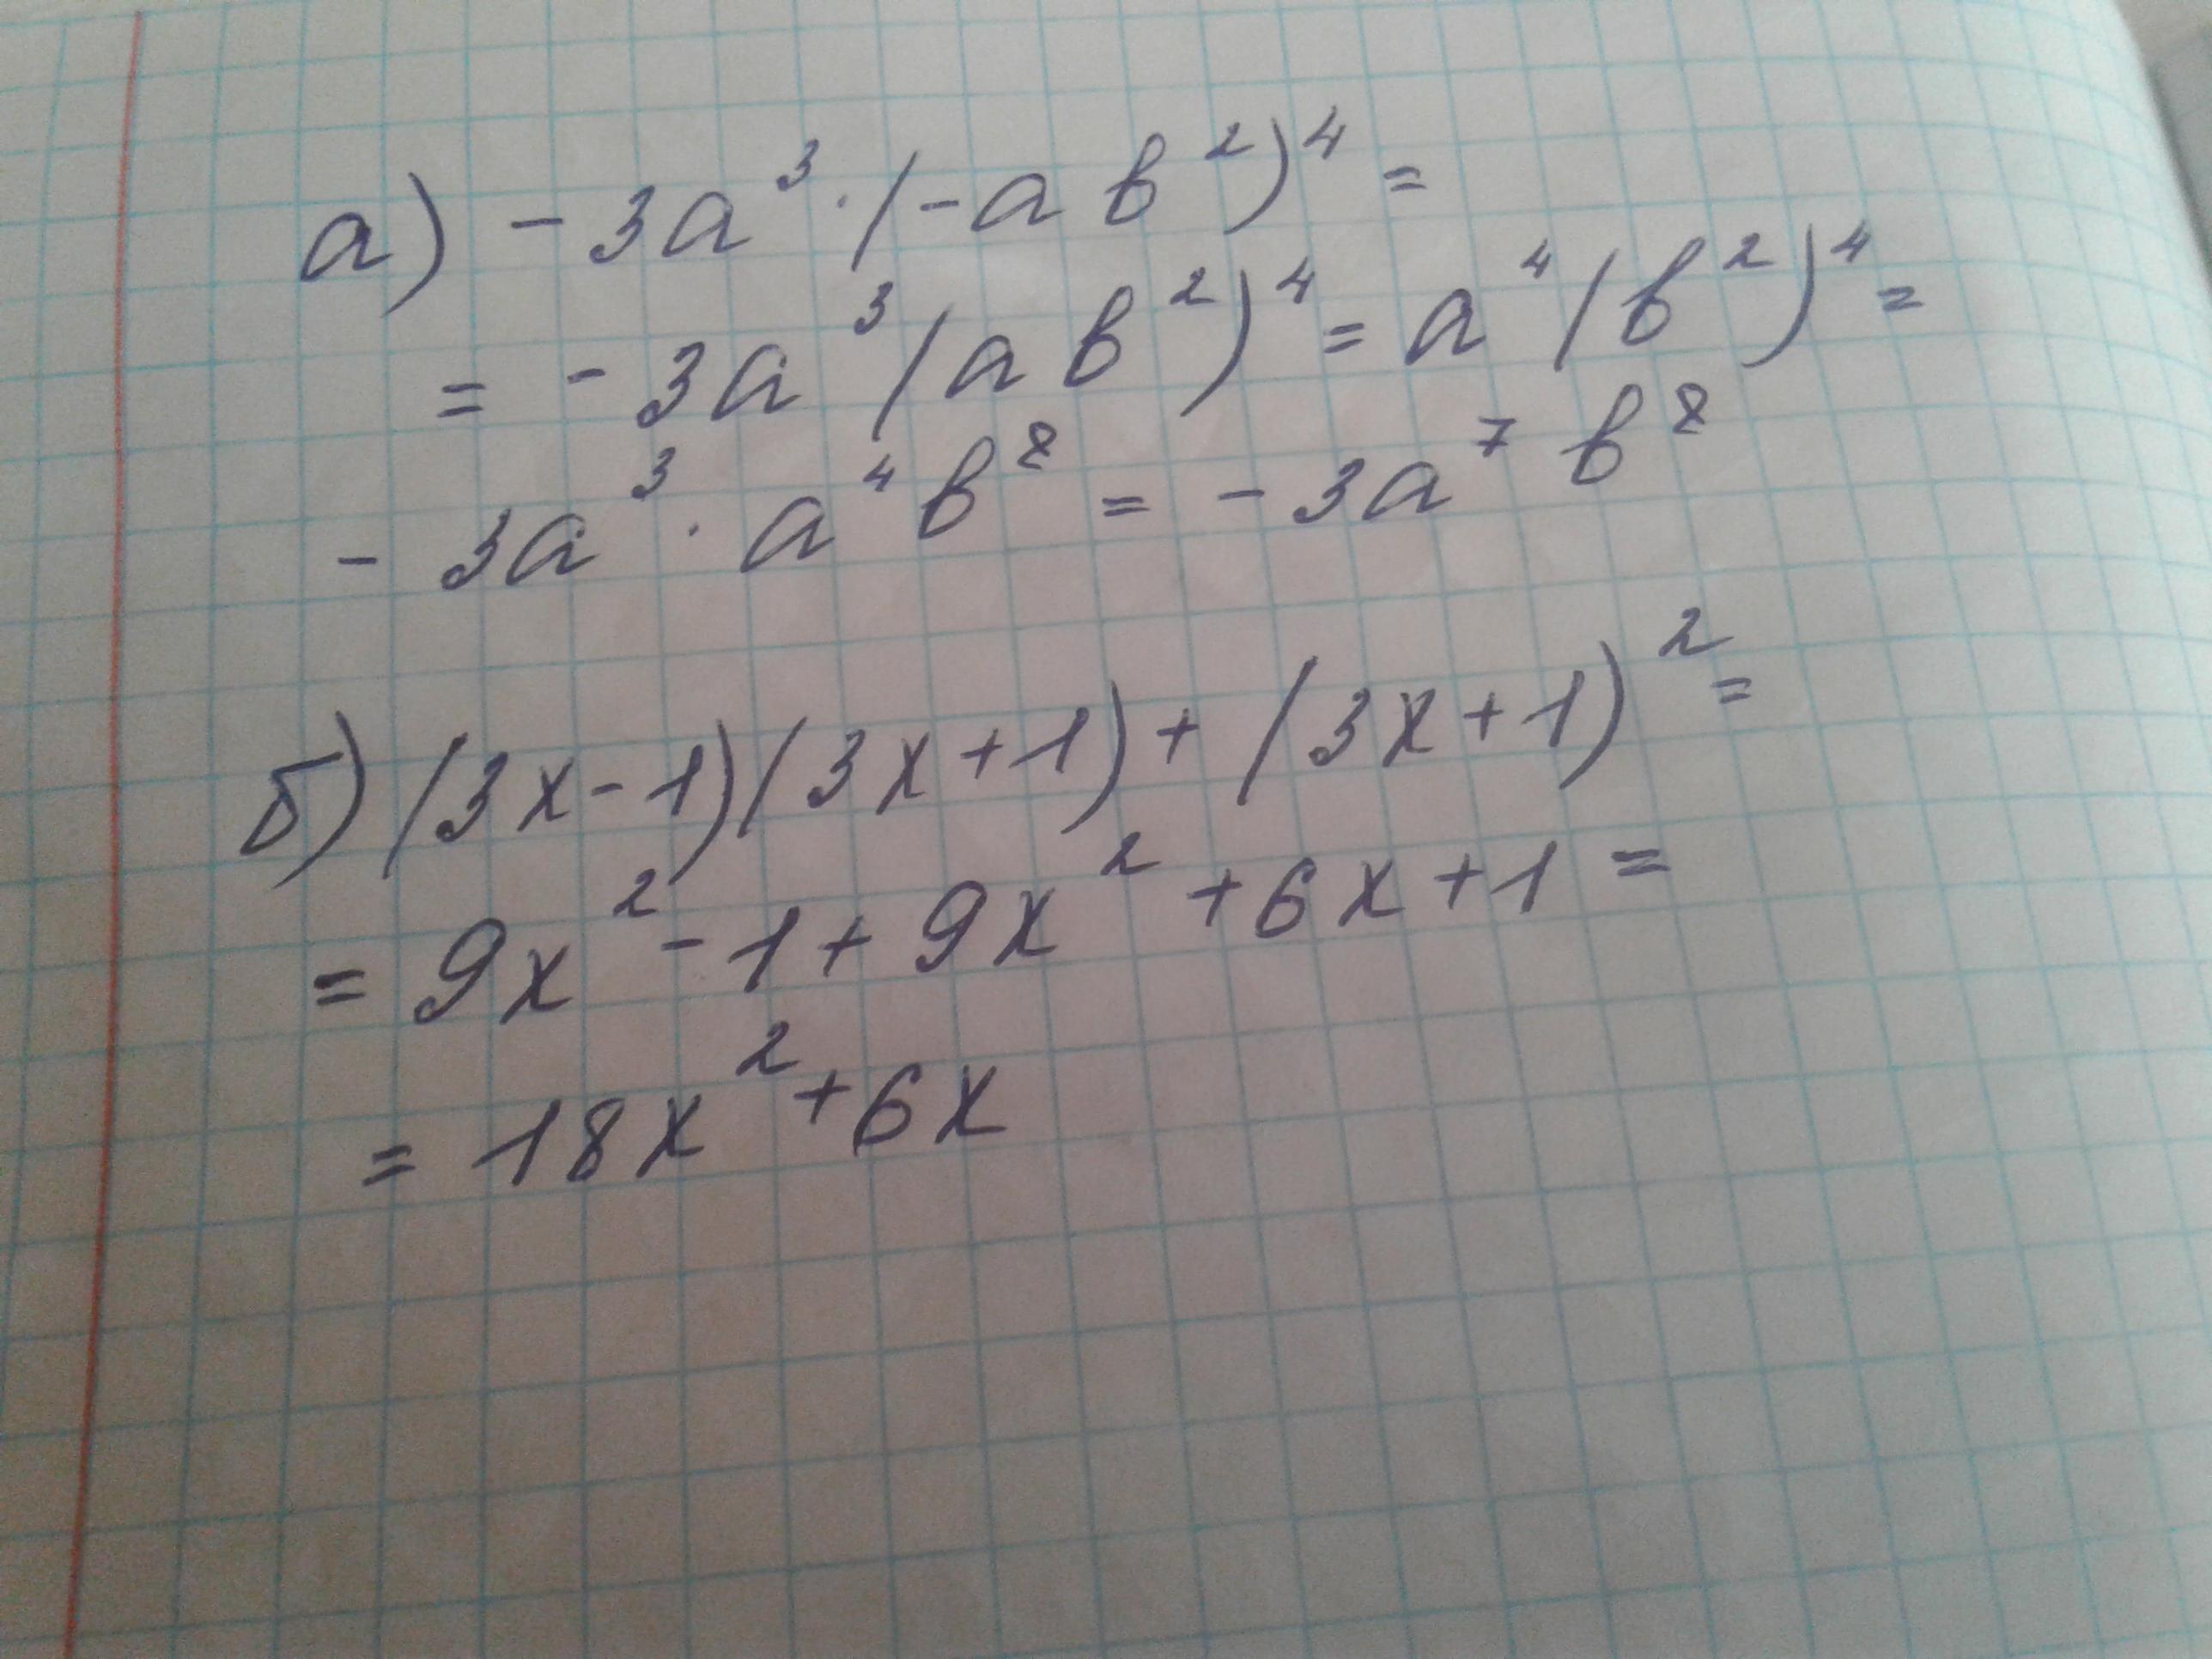 а) - 3a³ · (-ab²)⁴ =
= - 3a³(ab²)⁴ = a⁴(b²)⁴ =
- 3a³ · a⁴b⁸ = - 3a⁷b⁸
б) (3x-1)(3x+1)+(3x+1)² =
= 9x² - 1 + 9x² + 6x + 1 =
= 18x² + 6x